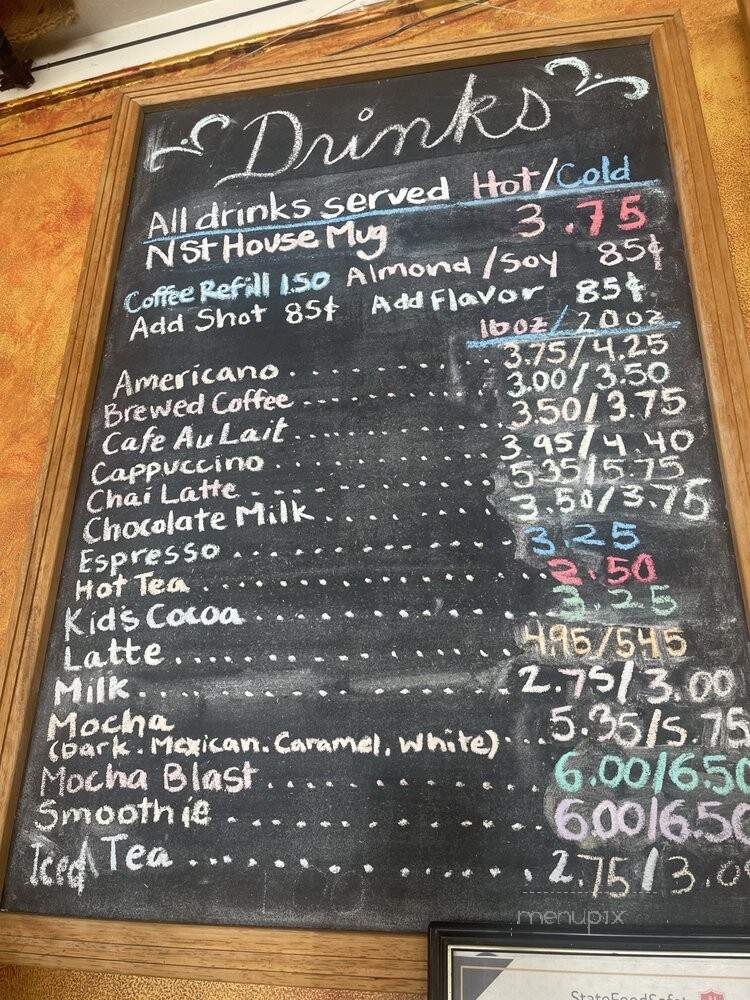 Drinks
All drinks served Hot/Cold
N St House Mug 3.75
Coffee Refill 1.50 Almond/Soy 85¢
Add Shot 85¢ Add Flavor 85¢
16oz/20oz
Americano 3.75/4.25
Brewed Coffee 3.00/3.50
Cafe Au Lait 3.50/3.75
Cappuccino 3.95/4.40
Chai Latte 5.35/5.75
Chocolate Milk 3.50/3.75
Espresso 3.25
Hot Tea 2.50
Kid's Cocoa 3.25
Latte 4.95/5.45
Milk 2.75/3.00
Mocha
(Dark. Mexican. Caramel, White) 5.35/5.75
Mocha Blast 6.00/6.50
Smoothie 6.00/6.50
Iced Tea 2.75/3.0
menupix
StateFoodSafe